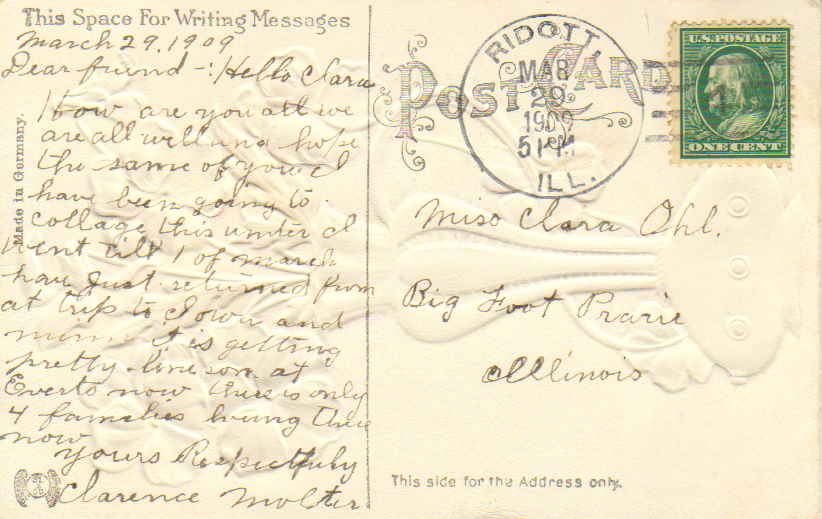 This Space For Writing Messages
March 29, 1909
Dear friend -: Hello Clara
How are you all we
are all well and hope
the same of you I
have been going to
collage this winter I
went till 1 of march
have Just returned from
at trip to Iowa and
minn it is getting
pretty lonesom at
Everts now there is only
4 families living there
now
yours Respectfuly
Clarence Molter
Made in Germany.
POST CARD
RIDOTT,
MAR
29
1909
5 PM
ILL.
1
U.S. POSTAGE
ONE CENT
Miss Clara Ohl.
Big Foot Prarie
Illinois
This side for the Address only.